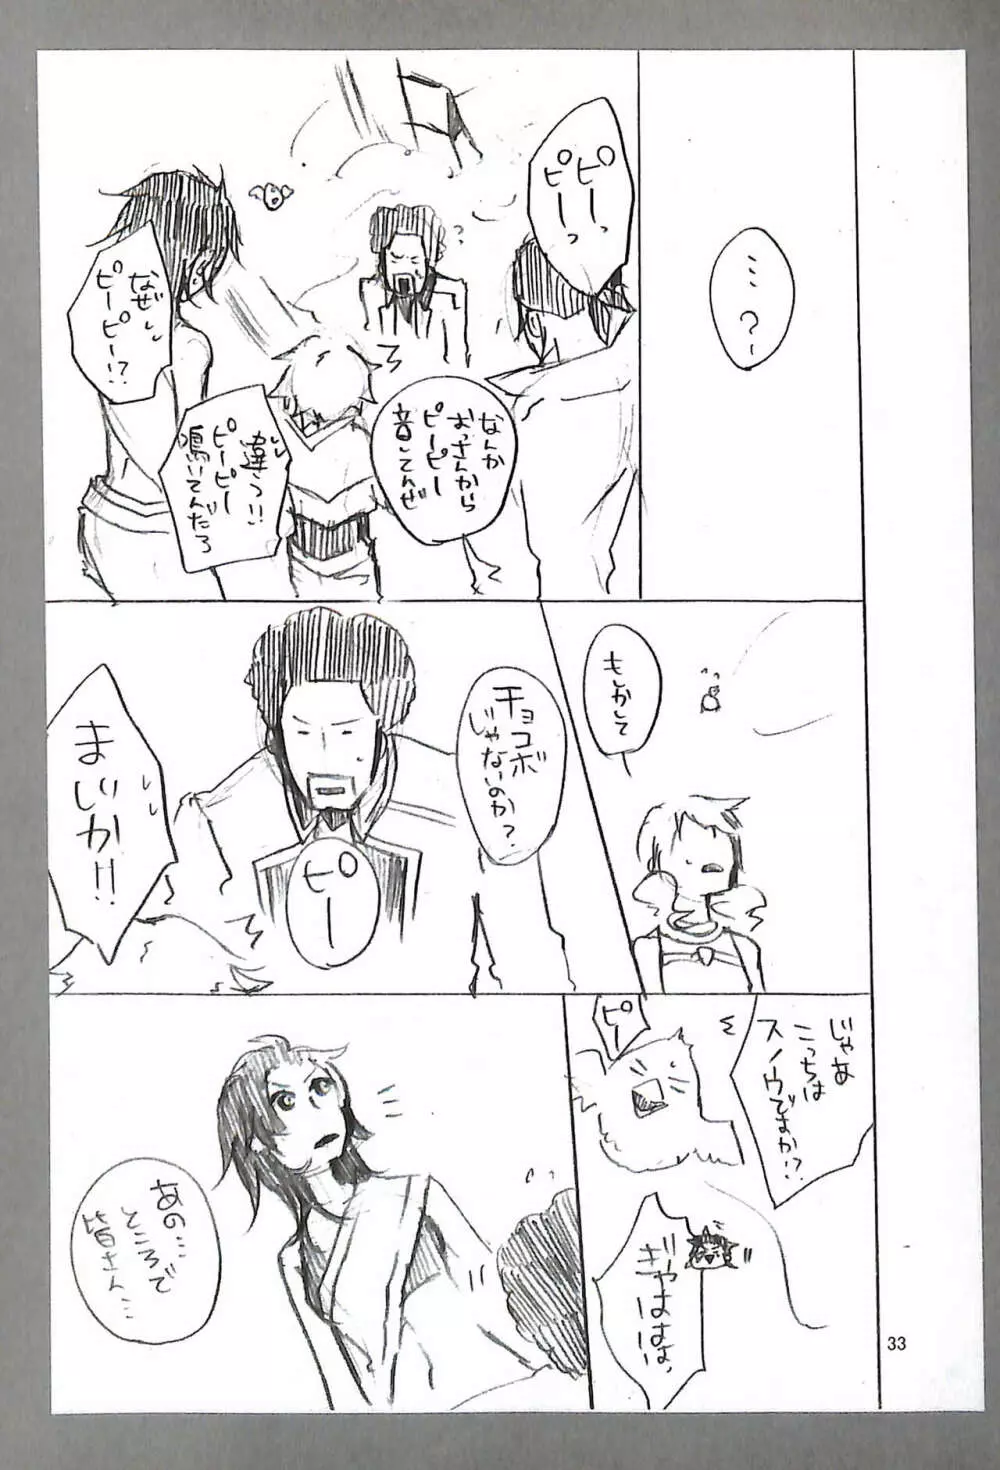 …？
ピーっ
ピーっ
なんか
おっさんから
ピーピー
音してんぜ
違う!!
ピーピー
鳴いてんだろ
なぜ
ピーピー!?
もしかして
チョコボ
じゃないのか？
ピー
まじか!!
じゃあ
こっちは
スノウですか!?
ピー
ぎゃははは、
あの…
ところで
皆さん…
33